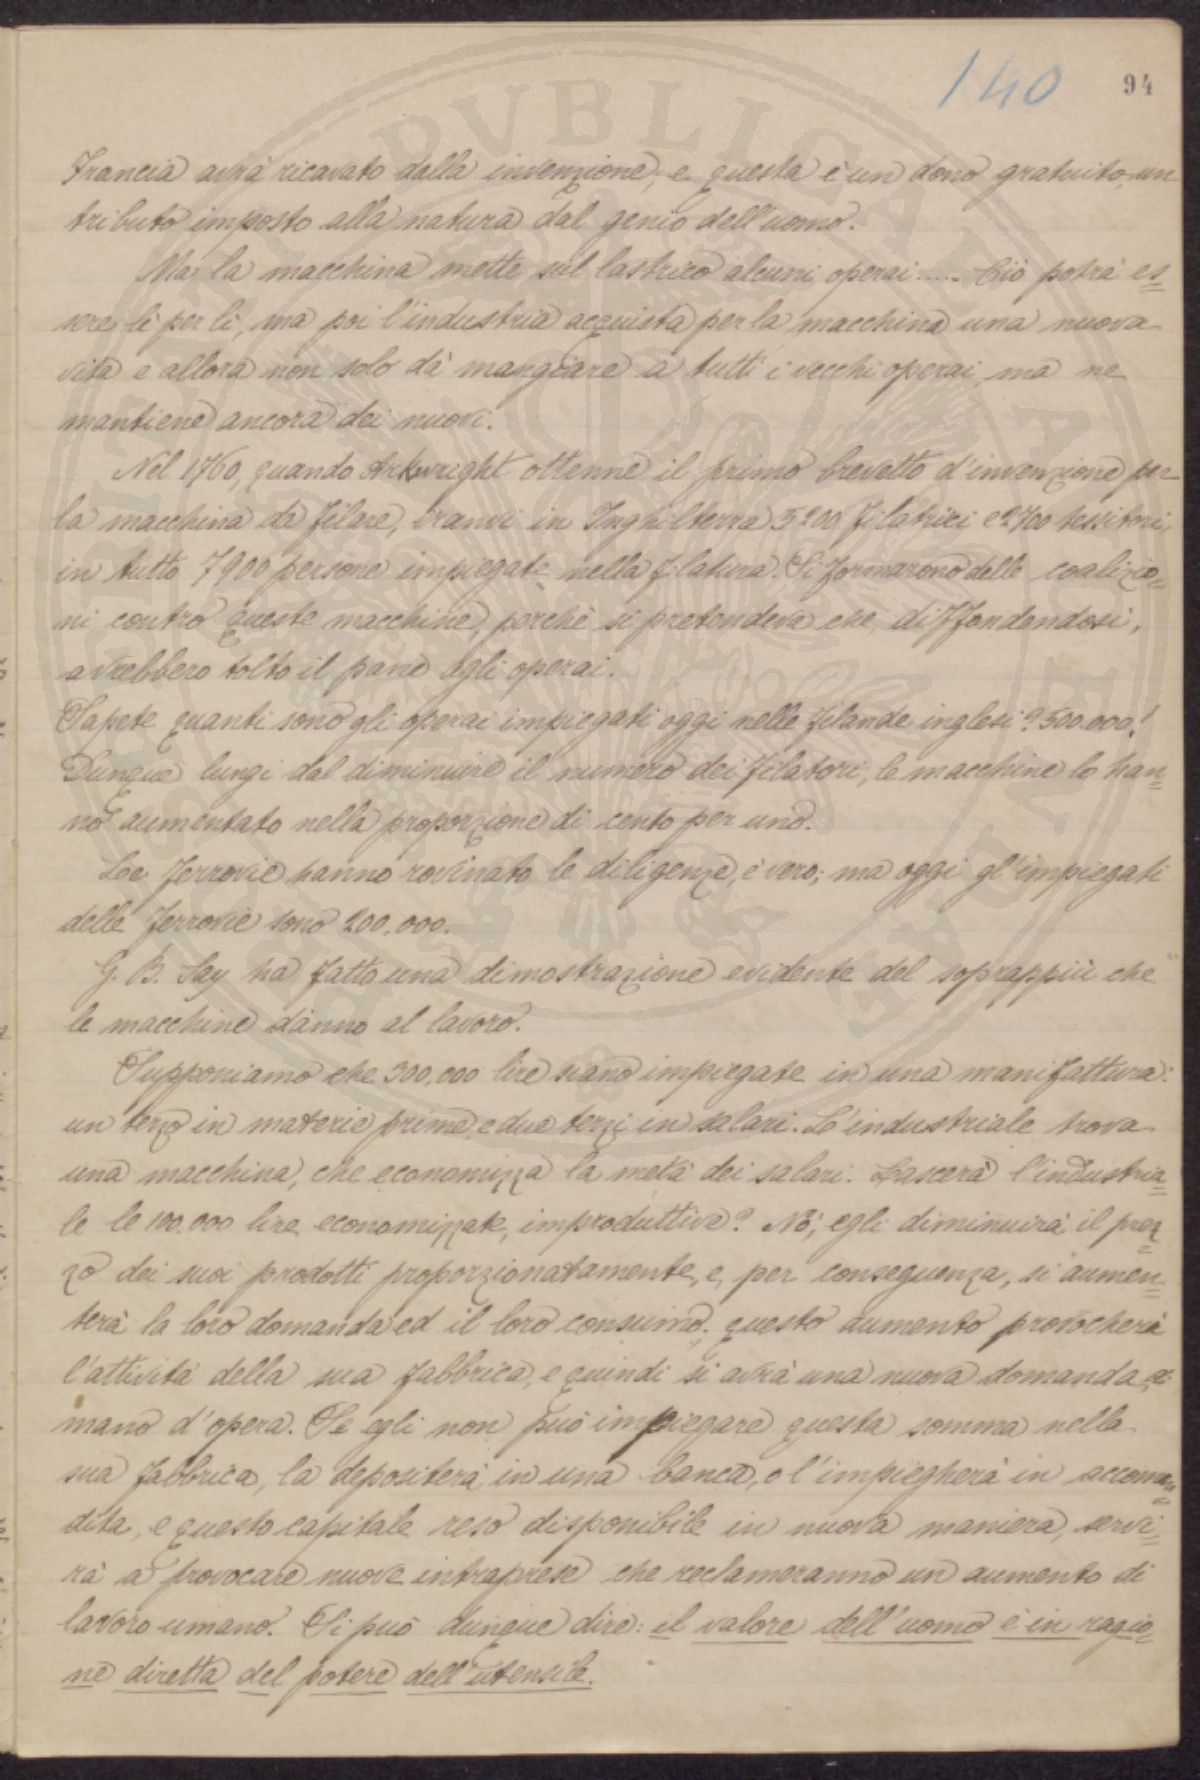 140 94
Francia avrà ricavato dalla invenzione, e questa è un dono gratuito, un
tributo imposto alla natura dal genio dell'uomo.
Ma la macchina mette sul lastrico alcuni operai ..... Ciò potrà es=
sere lì per lì, ma poi l'industria acquista per la macchina una nuova
vita e allora non solo dà mangiare a tutti i vecchi operai ma ne
mantiene ancora dei nuovi.
Nel 1760, quando Arkwright ottenne il primo brevetto d'invenzione per
la macchina da filare, eranvi in Inghilterra 5200 filatrici e 2700 tessitori,
in tutto 7900 persone impiegate nella filatura. Si formarono delle coalizio=
ni contro queste macchine, perchè si pretendeva che, diffondendosi,
avrebbero tolto il pane agli operai.
Sapete quanti sono gli operai impiegati oggi nelle filande inglesi? 500.000!
Dunque lungi dal diminuire il numero dei filatori, le macchine lo han=
no aumentato nella proporzione di cento per uno.
Le Ferrovie hanno rovinato le diligenze, è vero; ma oggi gl'impiegati
delle Ferrovie sono 200.000.
G. B. Say ha fatto una dimostrazione evidente del soprappiù che
le macchine dànno al lavoro.
Supponiamo che 300,000 lire siano impiegate in una manifattura:
un terzo in materie prime e due terzi in salari. L'industriale trova
una macchina, che economizza la metà dei salari. Lascerà l'industria=
le le 100.000 lire economizzate, improduttive? No; egli diminuirà il prez=
zo dei suoi prodotti proporzionatamente, e, per conseguenza, si aumen=
terà la loro domanda ed il loro consumo; questo aumento provocherà
l'attività della sua fabbrica, e quindi si avrà una nuova domanda di
mano d'opera. Se egli non può impiegare questa somma nella
sua fabbrica, la depositerà in una banca, o l'impiegherà in accoman=
dita, e questo capitale reso disponibile in nuova maniera, servi=
rà a provocare nuove intraprese che reclameranno un aumento di
lavoro umano. Si può dunque dire: il valore dell'uomo è in ragio=
ne diretta del potere dell'utensile.